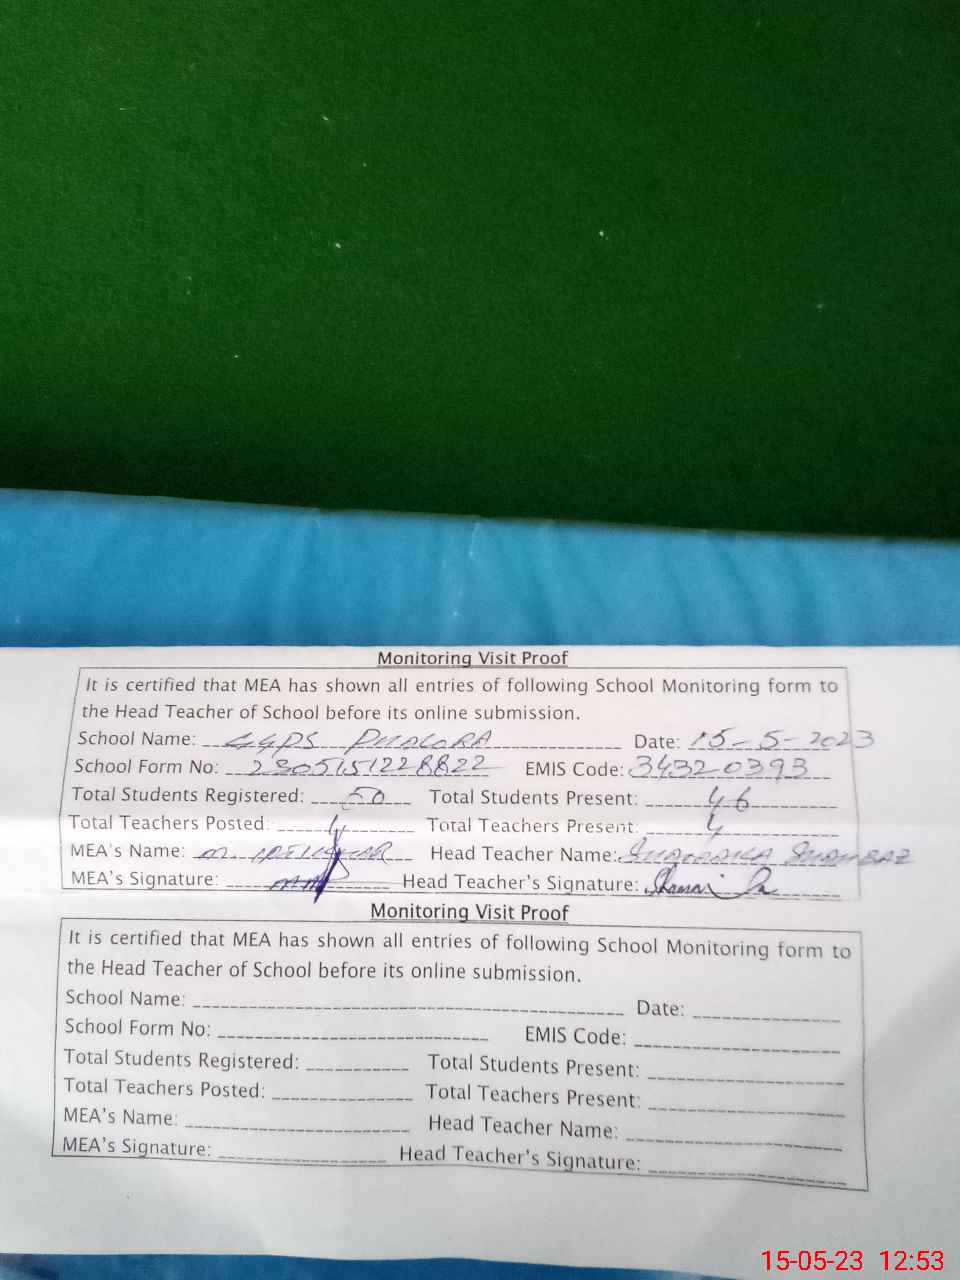 Monitoring Visit Proof
It is certified that MEA has shown all entries of following School Monitoring form to
the Head Teacher of School before its online submission.
School Name: GGPS PHALORA Date: 15-5-2023
School Form No: 2305151228822 EMIS Code: 34320393
Total Students Registered: 50 Total Students Present: 46
Total Teachers Posted: 4 Total Teachers Present: 4
MEA's Name: M. Head Teacher Name:
MEA's Signature: Head Teacher's Signature:
Monitoring Visit Proof
It is certified that MEA has shown all entries of following School Monitoring form to
the Head Teacher of School before its online submission.
School Name: Date:
School Form No: EMIS Code:
Total Students Registered: Total Students Present:
Total Teachers Posted: Total Teachers Present:
MEA's Name: Head Teacher Name:
MEA's Signature: Head Teacher's Signature:
15-05-23 12:53